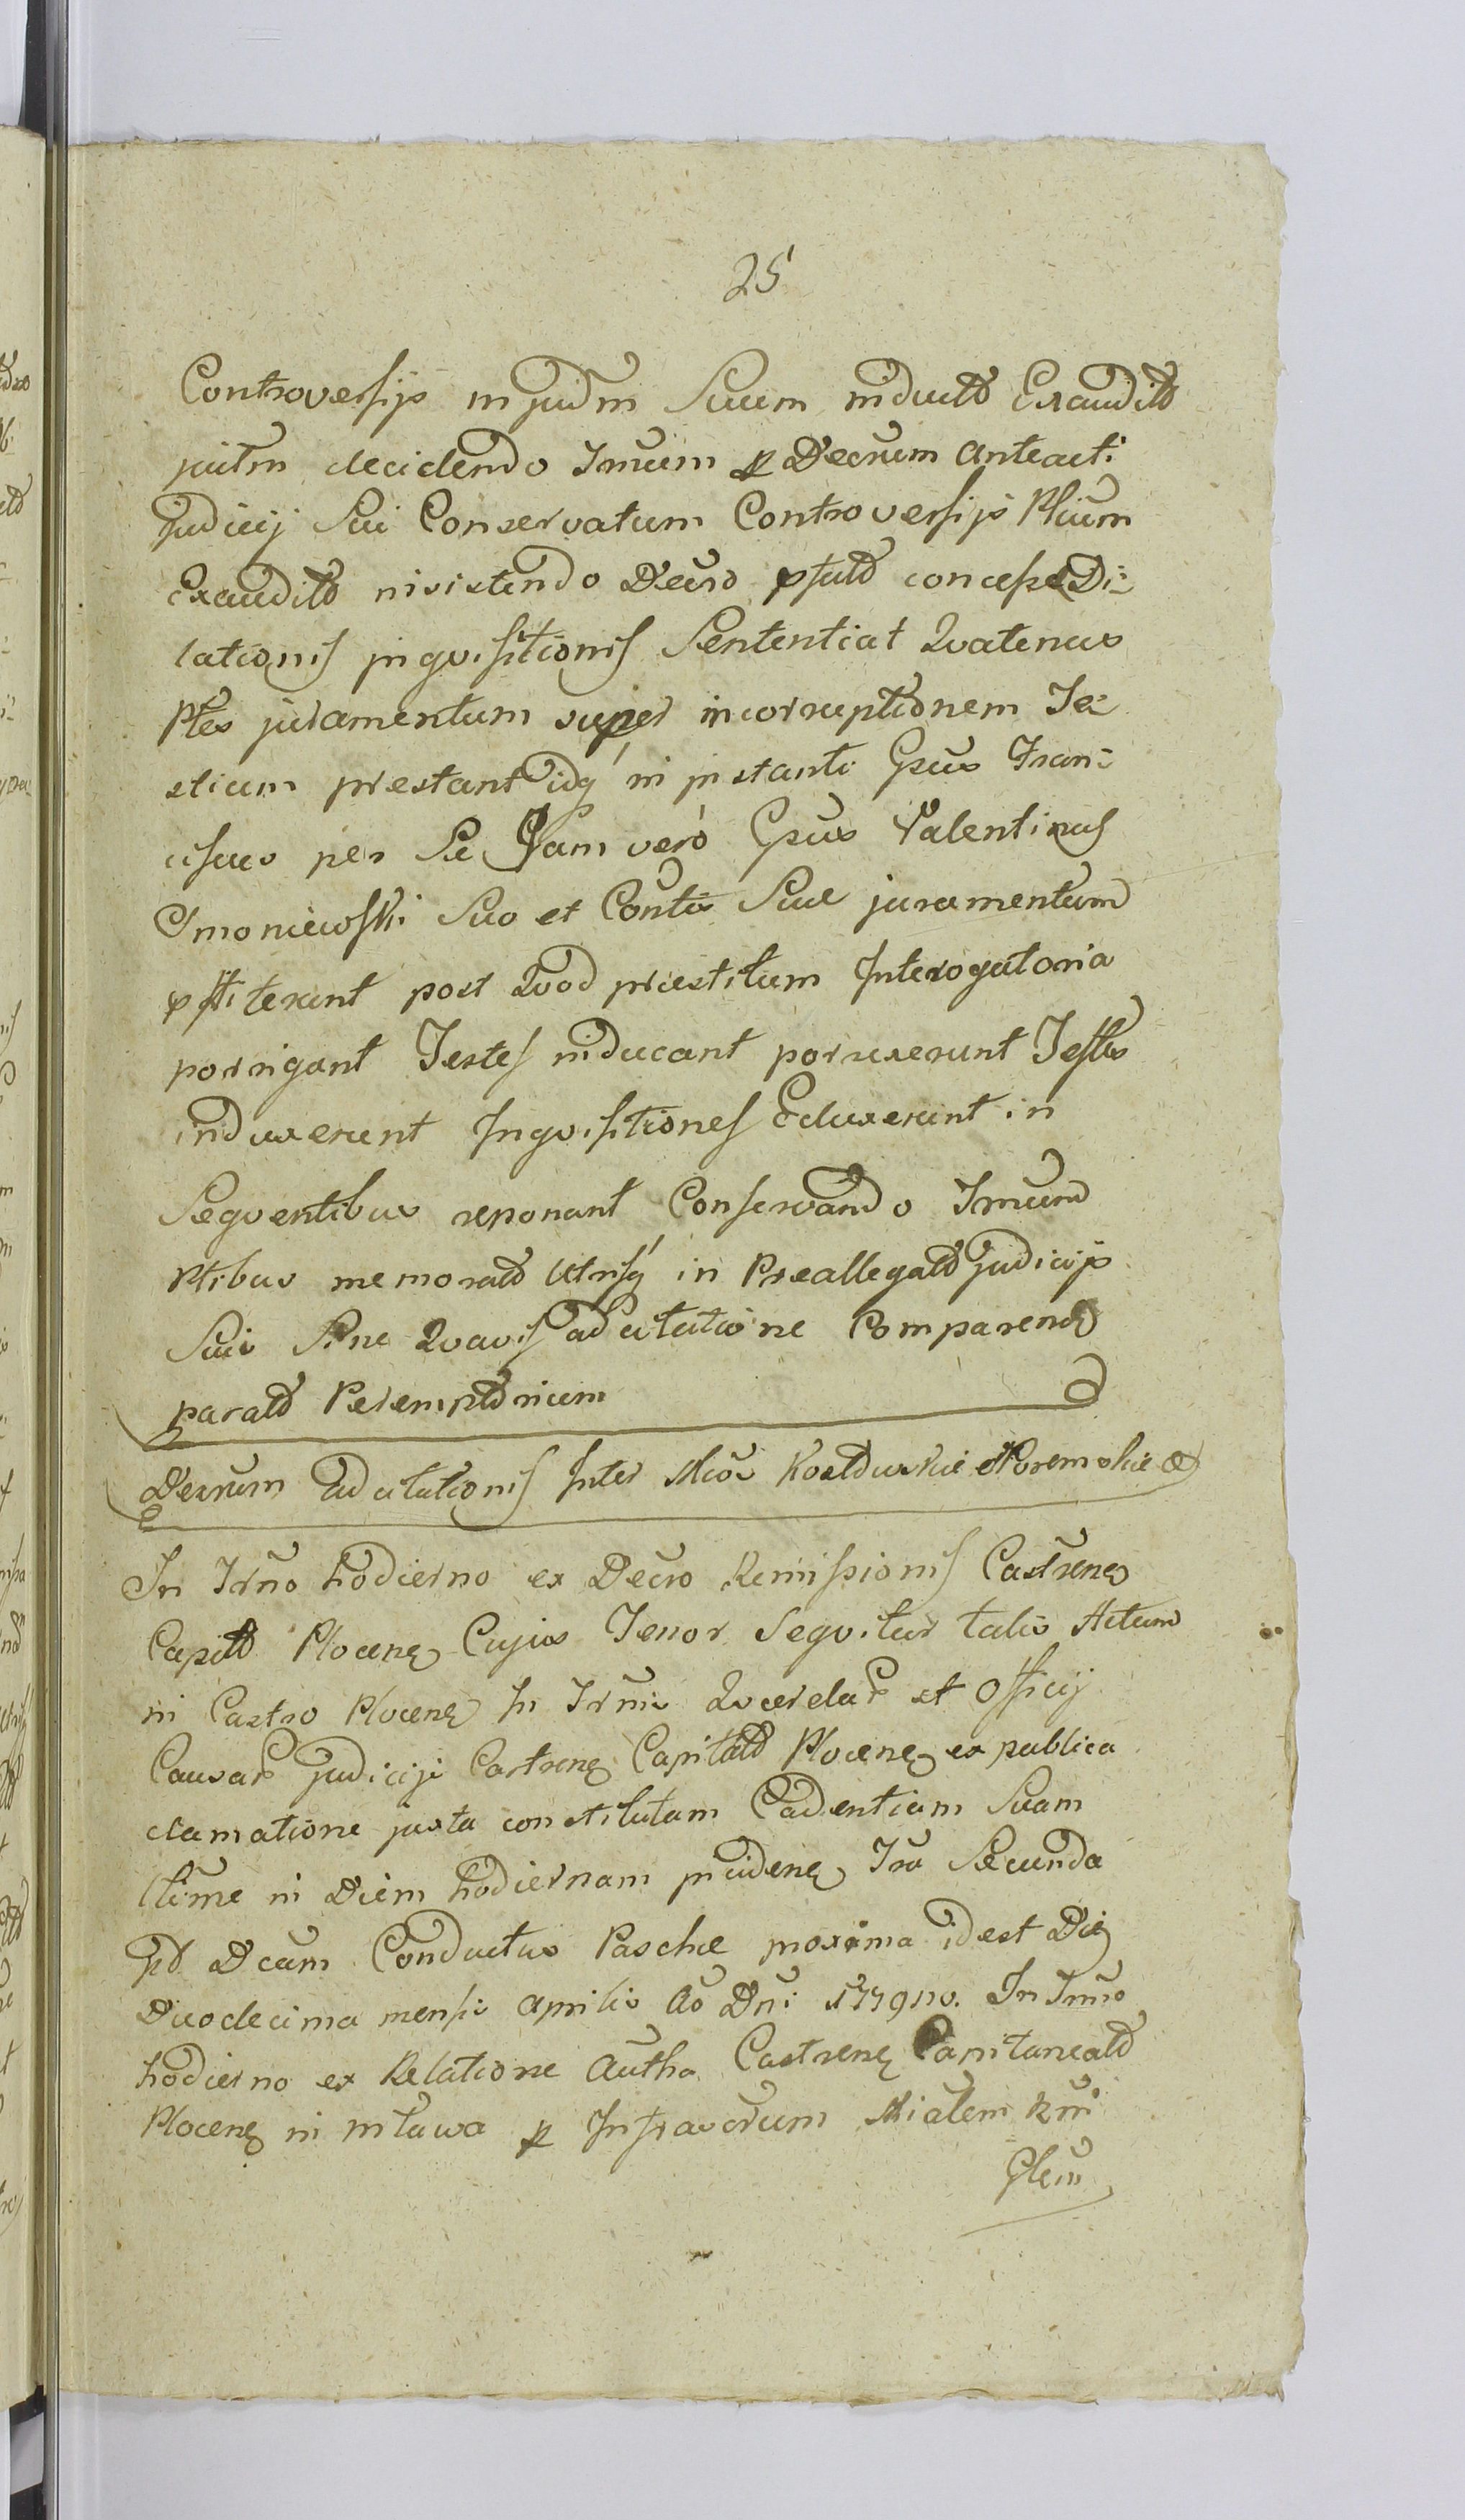 25
Controversijs in judm Suum induct Exaudit
juitm decidendo Tmum per Decrum Anteacti
judicij Sui Conservatum Controversijs Ptium
Exaudit insistendo Decro conces Di-
lationis inqvisitionis Sententiat Qvatenus
Ptes juramentum super incorruptionem Te-
stium prestant idq in instanti Gsus Fran-
ciscus per Se Jam vero Gsus Valentinus
Smoniewski Suo et Contis Sue juramentum
pstiterunt post Qvod prestitum Interogatoria
porrigant Testes inducant porrexerunt Testes
induxerunt Inqvisitiones Eduxerunt in
Seqventibus reponant Conservando Tmum
Ptibus memorat Utrisq in Preallegat judicijs
Suis Sine Qvavis adcitatione Comparend
parat Peremptorium
Decrum adcitationis Inter Mcos et
In Trno hodierno ex Decro Remissionis Castren
Capit Plocen Cujus Tenor Seqvitur talis Actum
in Castro Plocen In Trnis Qverelar et Officij
Causar judicijs Castren Capitat Plocen ex publica
clamatione juxta constitutam Cadentiam Suam
ltime in Diem hodiernam inciden Fra Secunda
pt Dcam Conductus Pasche proxima idest Die
Duodecima mensis Aprilis Ao Dni 1779no. In Trno
hodierno ex Relatione Autha Castren Capitaneat
Plocen in Mława per Infrascrum Mialem Rni
Glem